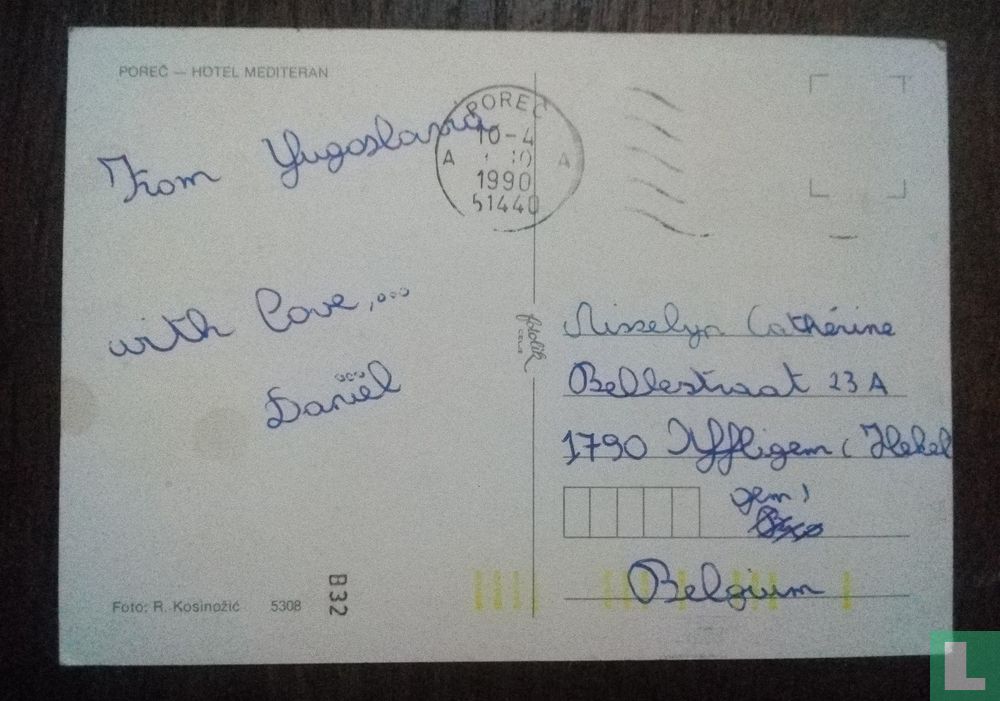 POREČ — HOTEL MEDITERAN
POREČ
10-4
A A
1990
51440
From Yugoslavia
with love,...
Daniël
fotolik
CELJE
Nisselyn Cathérine
Bellestraat 23A
1790 Affligem (Hekel
gem)
Belgium
Foto: R. Kosinožić 5308
B32
L